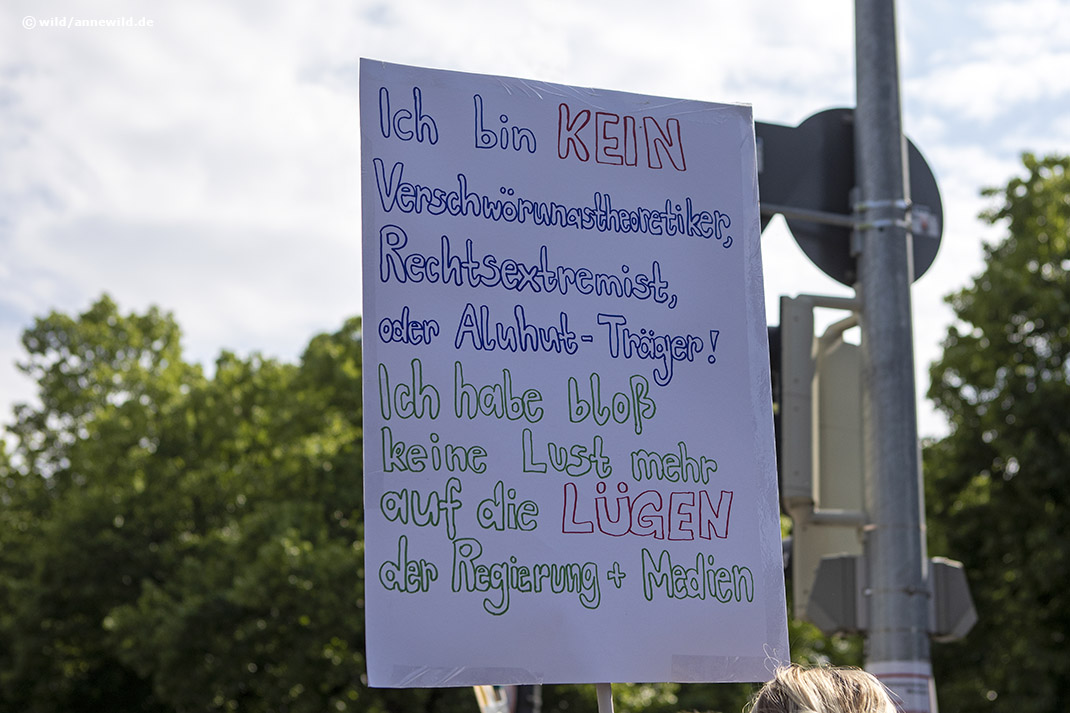 © wild/annewild.de
Ich bin KEIN
Verschwörunastheoretiker,
Rechtsextremist,
oder Aluhut-Träger!
Ich habe bloß
keine Lust mehr
auf die LÜGEN
der Regierung + Medien